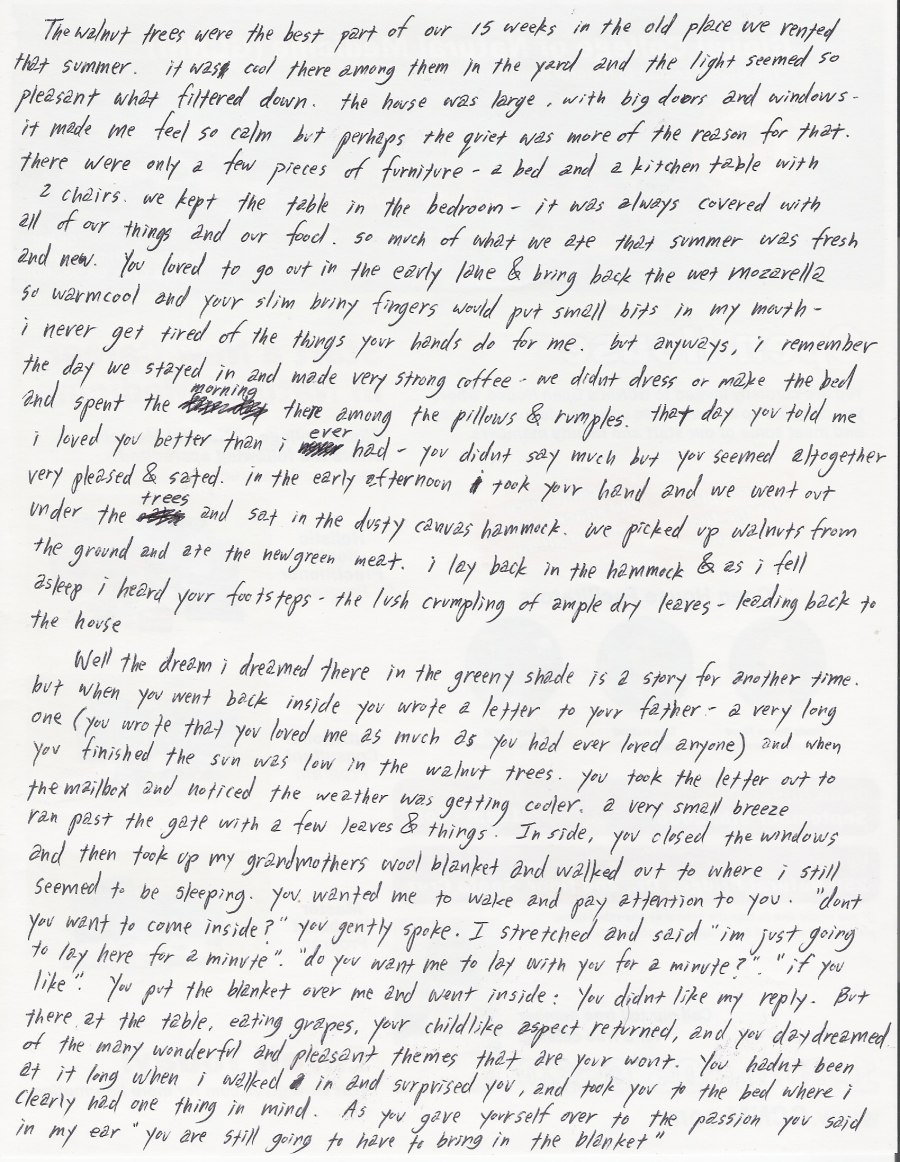 The walnut trees were the best part of our 15 weeks in the old place we rented
that summer. it was cool there among them in the yard and the light seemed so
pleasant what filtered down. the house was large, with big doors and windows -
it made me feel so calm but perhaps the quiet was more of the reason for that.
there were only a few pieces of furniture - a bed and a kitchen table with
2 chairs. we kept the table in the bedroom - it was always covered with
all of our things and our food. so much of what we ate that summer was fresh
and new. You loved to go out in the early lane & bring back the wet mozarella
so warmcool and your slim briny fingers would put small bits in my mouth -
i never get tired of the things your hands do for me. but anyways, i remember
the day we stayed in and made very strong coffee - we didnt dress or make the bed
and spent the morning there among the pillows & rumples. that day you told me
i loved you better than i ever had - you didnt say much but you seemed altogether
very pleased & sated. in the early afternoon i took your hand and we went out
under the trees and sat in the dusty canvas hammock. we picked up walnuts from
the ground and ate the newgreen meat. i lay back in the hammock & as i fell
asleep i heard your footsteps - the lush crumpling of ample dry leaves - leading back to
the house
Well the dream i dreamed there in the greeny shade is a story for another time.
but when you went back inside you wrote a letter to your father - a very long
one (you wrote that you loved me as much as you had ever loved anyone) and when
you finished the sun was low in the walnut trees. you took the letter out to
the mailbox and noticed the weather was getting cooler. a very small breeze
ran past the gate with a few leaves & things. Inside, you closed the windows
and then took up my grandmothers wool blanket and walked out to where i still
seemed to be sleeping. you wanted me to wake and pay attention to you. "dont
you want to come inside?" you gently spoke. I stretched and said "im just going
to lay here for a minute". "do you want me to lay with you for a minute?". "if you
like". You put the blanket over me and went inside: You didnt like my reply. But
there at the table, eating grapes, your childlike aspect returned, and you daydreamed
of the many wonderful and pleasant themes that are your wont. You hadnt been
at it long when i walked in and surprised you, and took you to the bed where i
clearly had one thing in mind. As you gave yourself over to the passion you said
in my ear "you are still going to have to bring in the blanket"